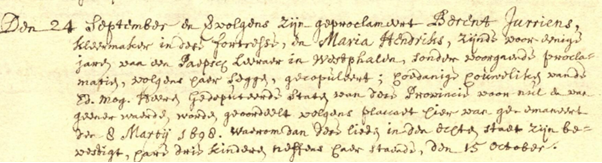 Den 24 September en 8 volgens zijn geproclameert Berent Jurriens,
kleermaker in dese fortresse, en Maria Hendriks, zijnde voor eenige
jaren van een Paepsch Leeraer in Westphalen, sonder voorgaende procla-
matie, volgens haer seggen, gecopuleert; hoedanige houwelicken van de
Ed. Mog. Heeren Gedeputeerde Staten van dese Provincie voor nul en van
geener waerde, worden geoordeelt volgens placcaet hier van geemaneert
den 8 Martij 1698. Waerom dan dese lieden in den echten staet zijn be-
vestigt, hare drie kinderen neffens haer staende, den 15 October.